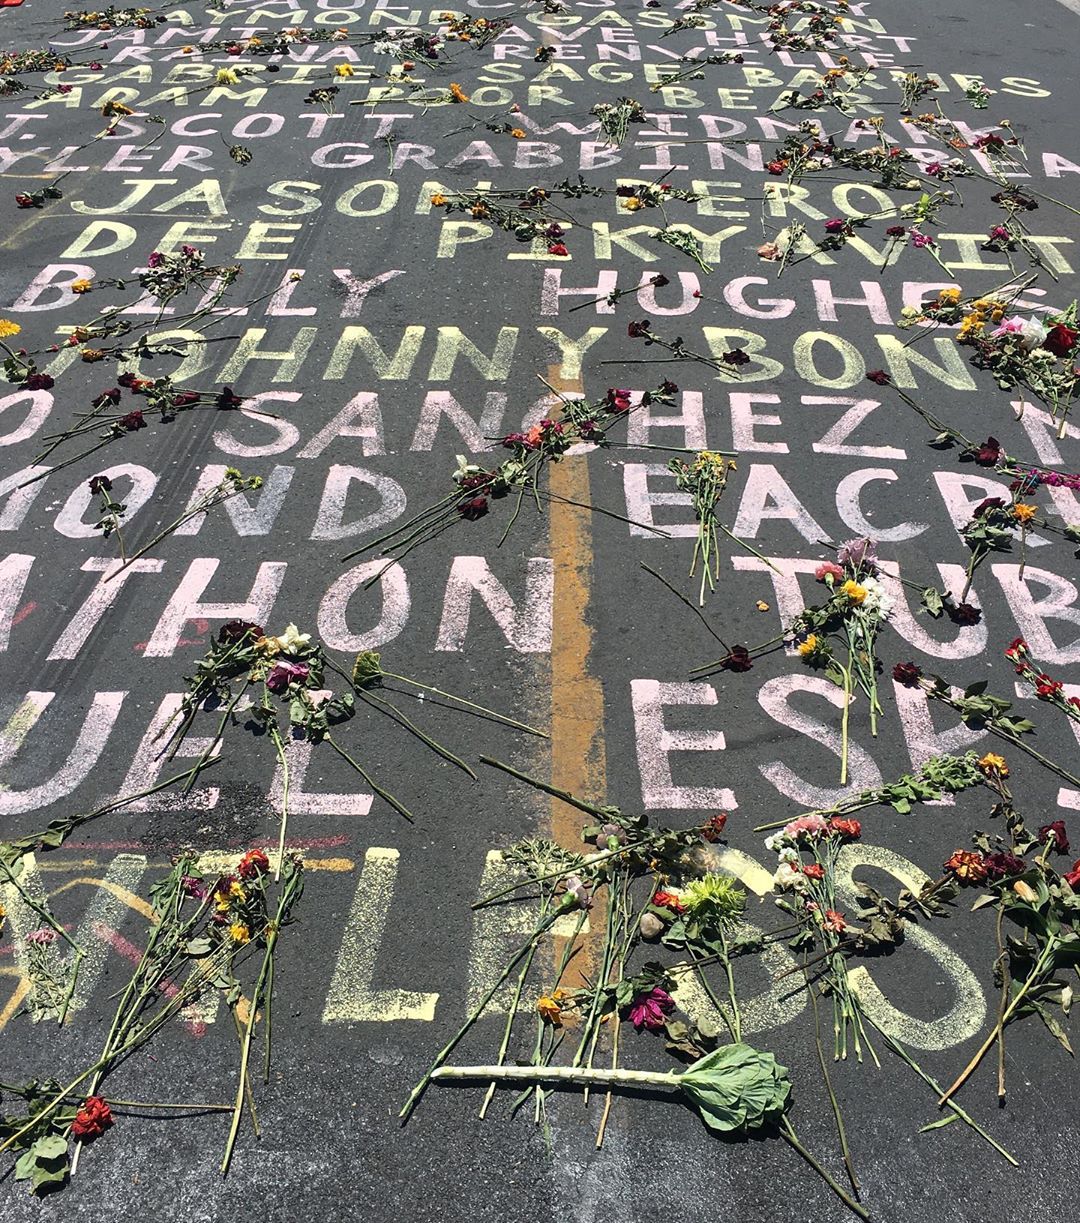 PAUL CASTAWAY
RAYMOND GASSMAN
HEART
RAINA RENVILLE
GABRIEL SAGE BARNES
ADAM POOR BEAR
T. SCOTT WIDMARK
YLER GRABBIN BEA
JASON PERO
DEE PIKYAVIT
BILLY HUGHES
JOHNNY BON
O SANCHEZ M
MOND EACR
ATHON TUB
UEL ESP